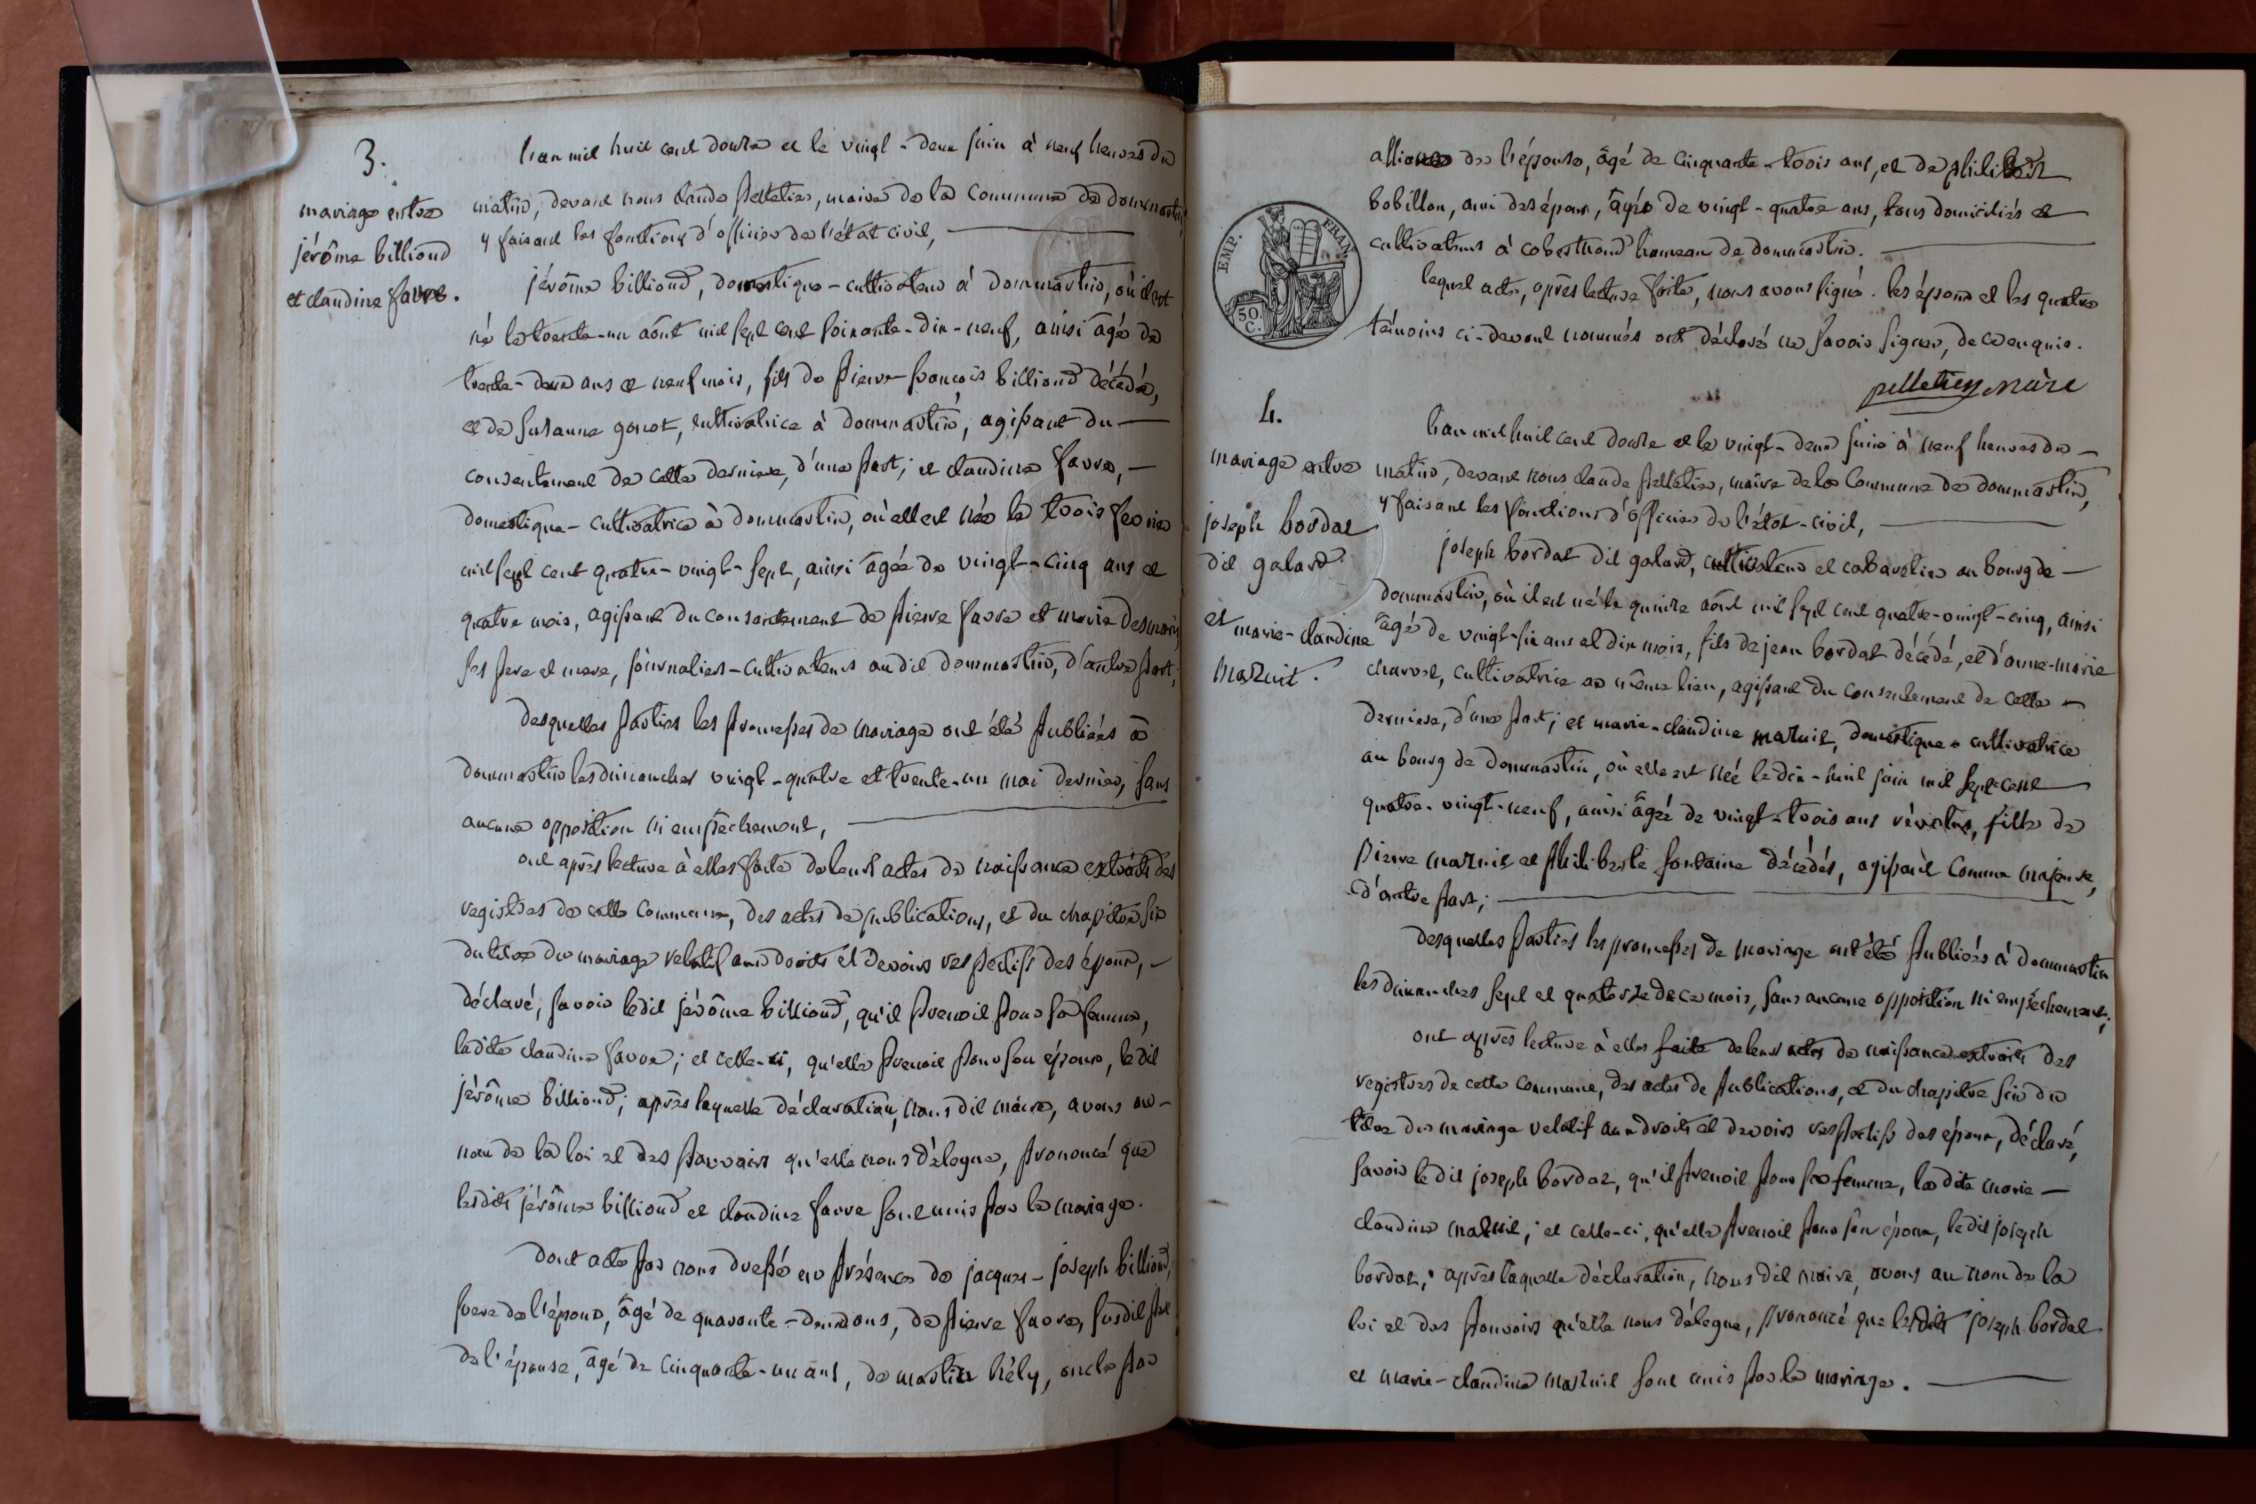 3.
mariage entre
jérôme billioud
et claudine favre.
l'an mil huit cent douze et le vingt-deux juin à neuf heures du
matin, devant nous claude pelletier, maire de la commune de dommartin,
y faisant les fonctions d'officier de l'état civil,
jérôme billioud, domestique-cultivateur à dommartin, où il est
né le trente-un août mil sept cent soixante-dix-neuf, ainsi âgé de
trente-deux ans et neuf mois, fils de pierre-françois billioud décédé,
et de susanne gonot, cultivatrice à dommartin, agissant du
consentement de cette derniere, d'une part; et claudine favre,
domestique-cultivatrice à dommartin, où elle est née le trois fevrier
mil sept cent quatre-vingt-sept, ainsi âgée de vingt-cinq ans et
quatre mois, agissant du consentement de pierre favre et marie desmaris
ses pere et mere, journaliers-cultivateurs audit dommartin, d'autre part;
desquelles parties les promesses de mariage ont été publiées à
dommartin les dimanches vingt-quatre et trente-un mai dernier, sans
aucune opposition ni empêchement,
ont après lecture à elles faite de leurs actes de naissance extraits des
registres de cette commune, des actes de publications, et du chapitre six
du titre du mariage relatif aux droits et devoirs respectifs des époux,
déclaré, savoir ledit jérôme billioud, qu'il prenoit pour sa femme,
ladite claudine favre; et celle-ci, qu'elle prenoit pour son époux, ledit
jérôme billioud; après laquelle déclaration, nous dit maire, avons au
nom de la loi et des pouvoirs qu'elle nous délegue, prononcé que
lesdits jérôme billioud et claudine favre sont unis par le mariage.
dont acte par nous dressé en présence de jacques-joseph billioud,
frere de l'époux, âgé de quarante-deux ans, de pierre favre, susdit pere
de l'épouse, âgé de cinquante-un ans, de martin hély, oncle par
alliance de l'épouse, âgé de cinquante-trois ans, et de philibert
bobillon, ami des époux, âgé de vingt-quatre ans, tous domiciliés et
cultivateurs à coberthoud hameau de dommartin.
lequel acte, après lecture faite, nous avons signé. les époux et les quatre
témoins ci-devant nommés ont déclaré ne savoir signer, de ce enquis.
pelletier maire
EMP. FRAN.
50 C.
4.
mariage entre
joseph bordat
dit galard
et marie-claudine
mazuit.
l'an mil huit cent douze et le vingt-deux juin à neuf heures du
matin, devant nous claude pelletier, maire de la commune de dommartin,
y faisant les fonctions d'officier de l'état-civil,
joseph bordat dit galard, cultivateur et cabaretier au bourg de
dommartin, où il est né le quinze août mil sept cent quatre-vingt-cinq, ainsi
âgé de vingt-six ans et dix mois, fils de jean bordat décédé, et d'anne-marie
charvet, cultivatrice au même lieu, agissant du consentement de cette
derniere, d'une part; et marie-claudine mazuit, domestique-cultivatrice
au bourg de dommartin, où elle est née le dix-huit juin mil sept cent
quatre-vingt-neuf, ainsi âgée de vingt-trois ans révolus, fille de
pierre mazuit et philiberte fontaine décédés, agissant comme majeure,
d'autre part;
desquelles parties les promesses de mariage ont été publiées à dommartin
les dimanches sept et quatorze de ce mois, sans aucune opposition ni empêchement;
ont après lecture à elles faite de leurs actes de naissance extraits des
registres de cette commune, des actes de publications, et du chapitre six du
titre du mariage relatif aux droits et devoirs respectifs des époux, déclaré,
savoir ledit joseph bordat, qu'il prenoit pour sa femme, ladite marie-
claudine mazuit; et celle-ci, qu'elle prenoit pour son époux, ledit joseph
bordat; après laquelle déclaration, nous dit maire, avons au nom de la
loi et des pouvoirs qu'elle nous délegue, prononcé que lesdits joseph bordat
et marie-claudine mazuit sont unis par le mariage.